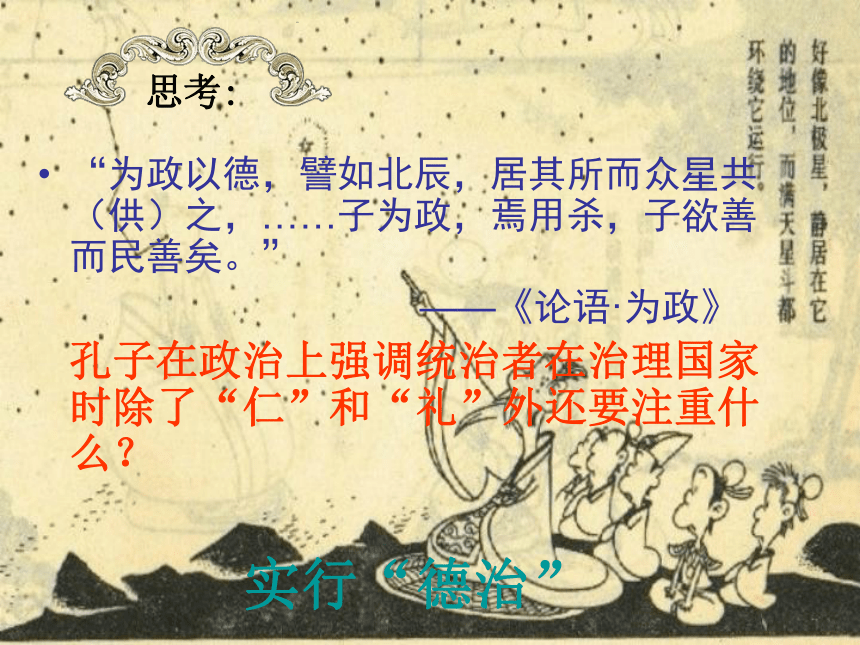 思考：
• “为政以德，譬如北辰，居其所而众星共
（供）之，……子为政，焉用杀，子欲善
而民善矣。”
——《论语·为政》
孔子在政治上强调统治者在治理国家
时除了“仁”和“礼”外还要注重什
么？
实行“德治”
好像北极星，静居在它
的地位，而满天星斗都
环绕它运行。